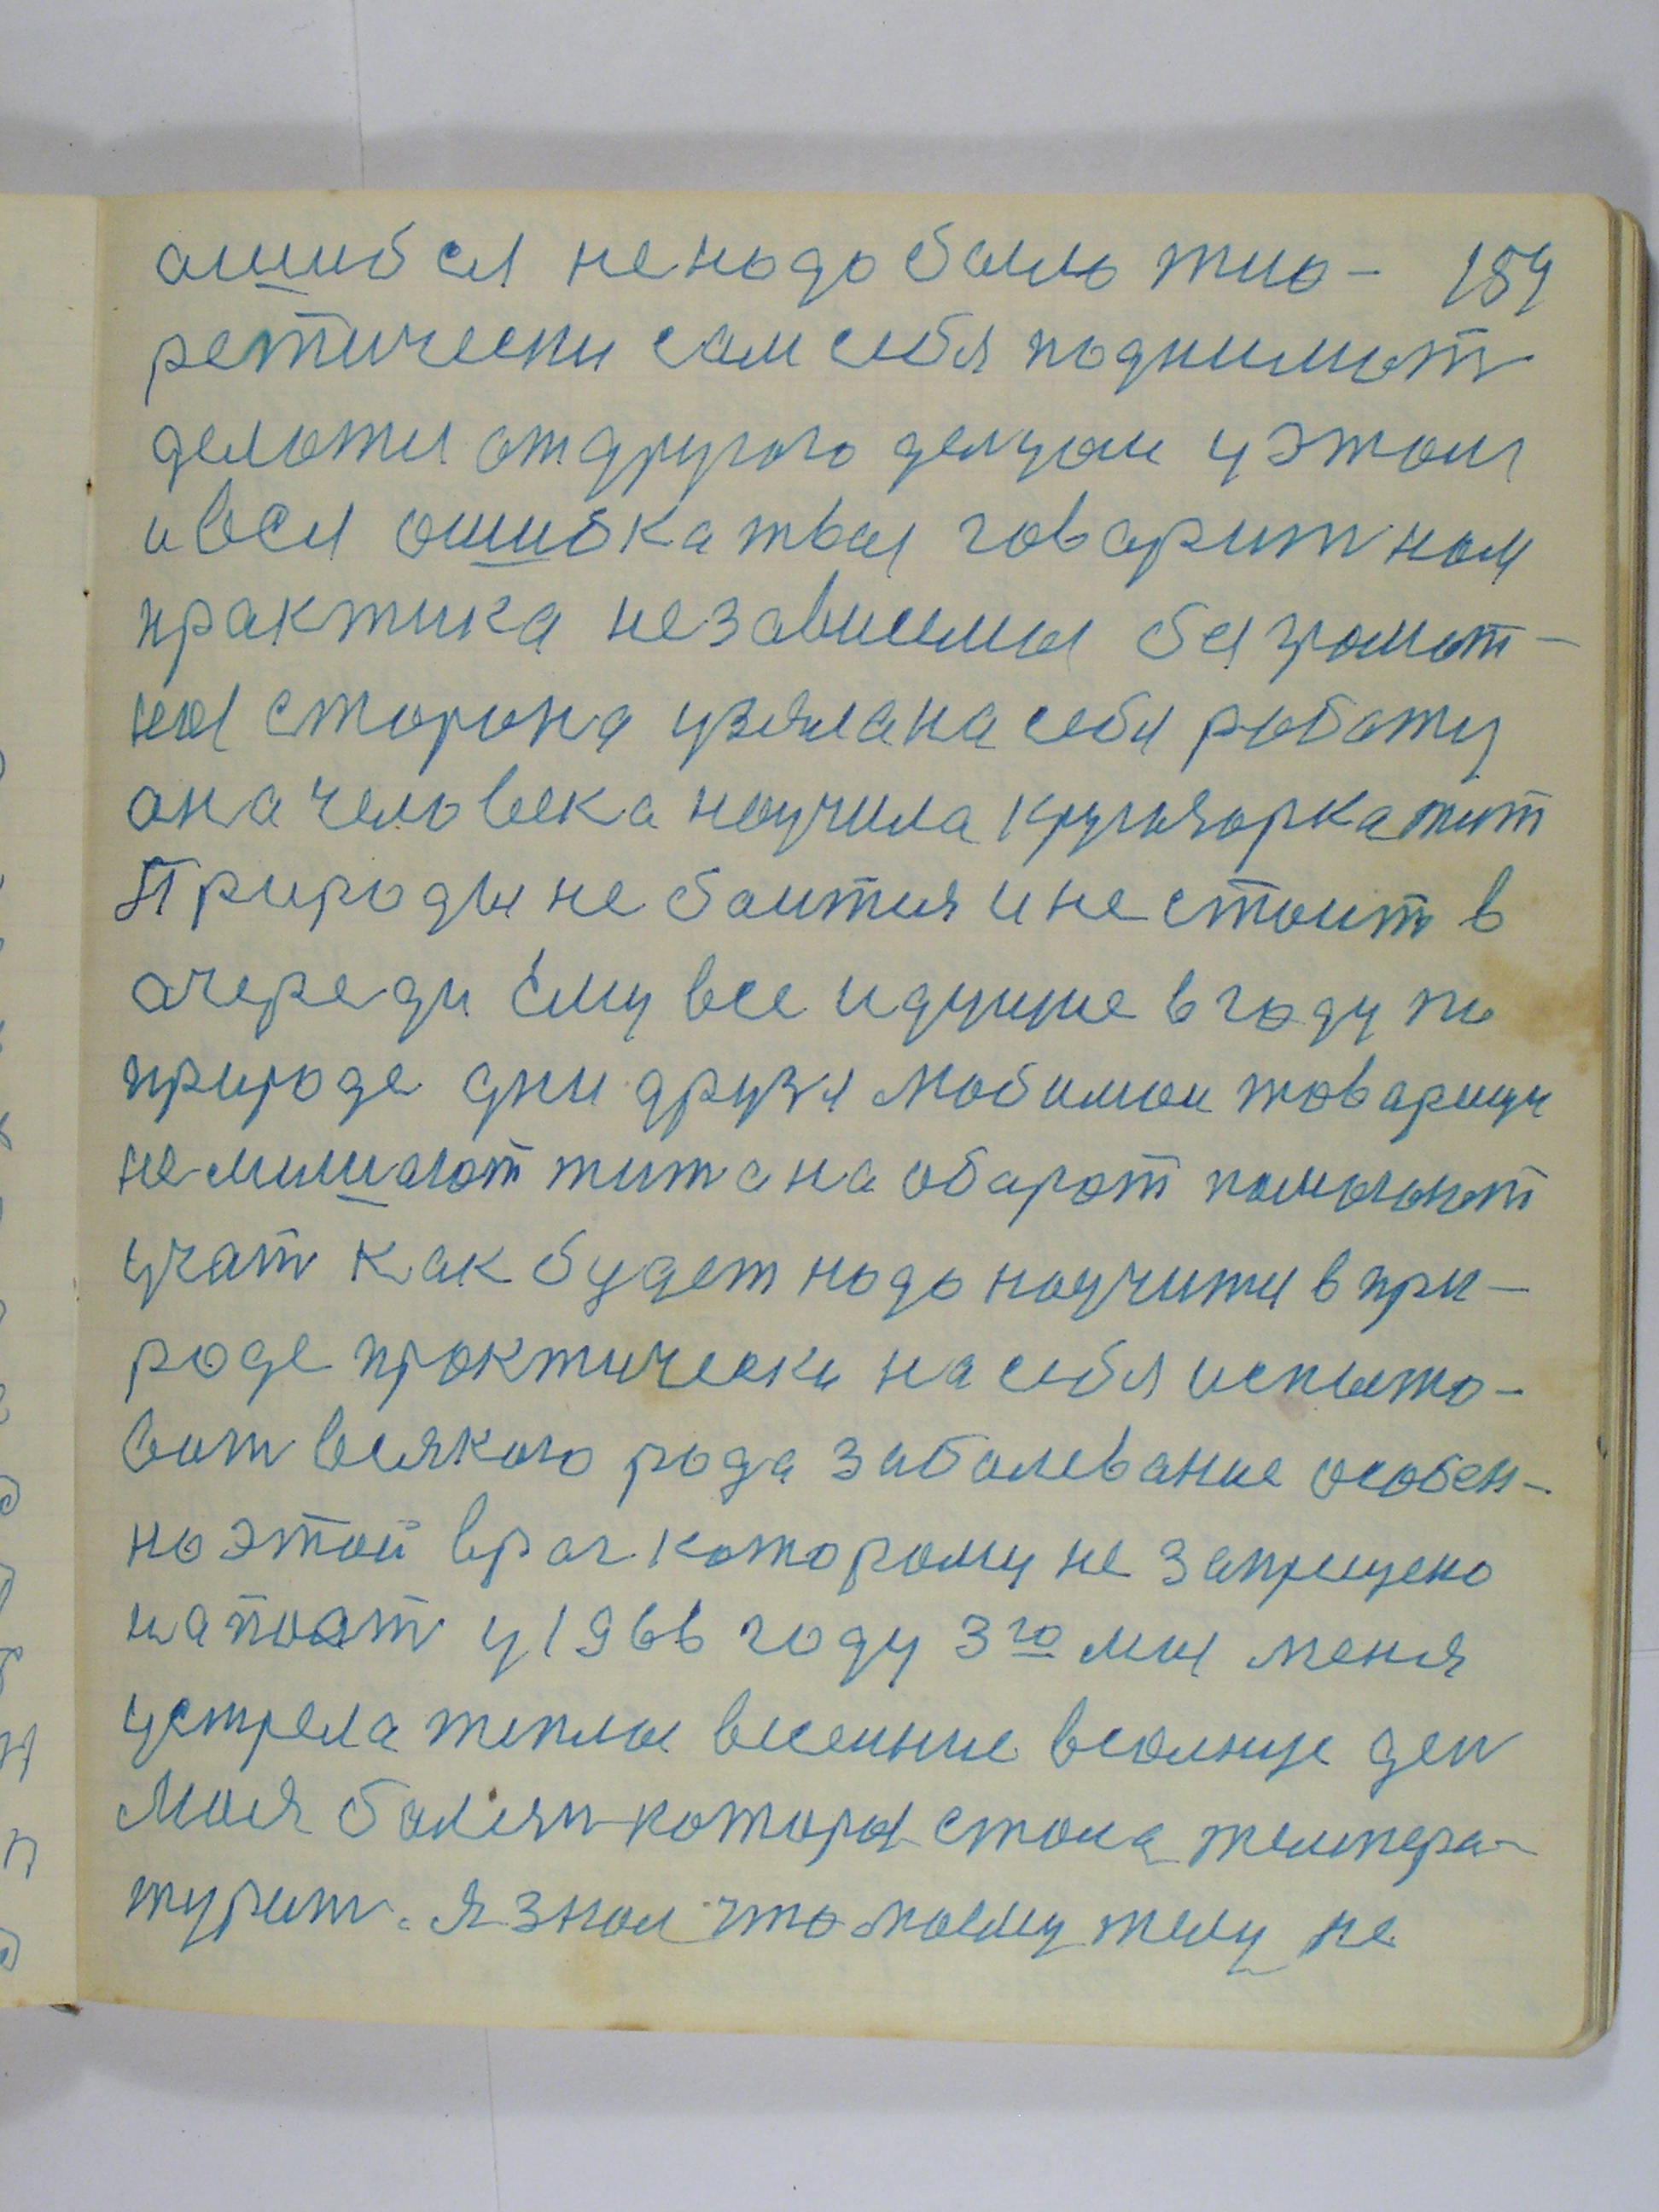 ашибся ненадо было тио- 184
ретически сам себя поднимат
делати отдругого делцом уэтом
ився ошибка твая говарит нам
практика независимая безграмат-
ная сторона узялана себя работу
она человека научила круглярка жит
Природы не баитця и не стоит в
очереди ему все идущие в году по
природе дни друзя любимаи товарищи
не мишают жит а на обарот памагают
учат как будет надо научити в при-
роде практически на себя испыта-
ват всякого рода заболевание особен-
но этой врач которому не запрещено
напоат у 1966 году 3го мая меня
устрела теплая весенние всолнце ден
Моя болезн которая стала темпера-
турит. Я знаю что моему телу не